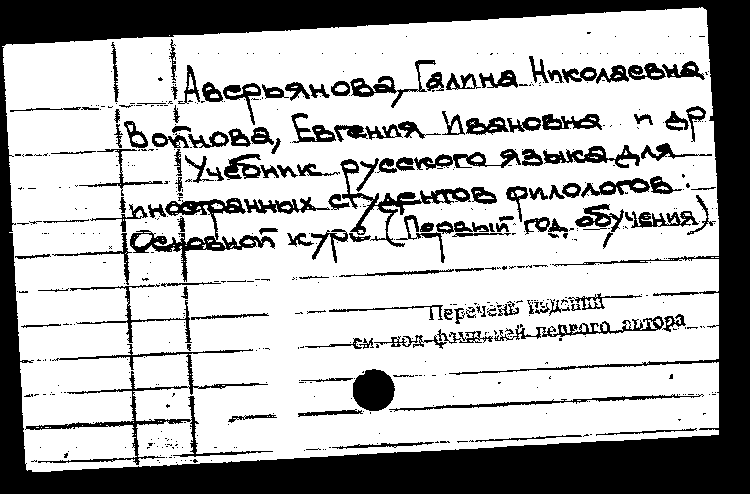 Аверьянова, Галина Николаевна
Войнова, Евгения Ивановна и др.
Учебник русского языка для
иностранных студентов филологов:
Основной курс (Первый год обучения).
Перечень изданий
см. под фамилией первого автора